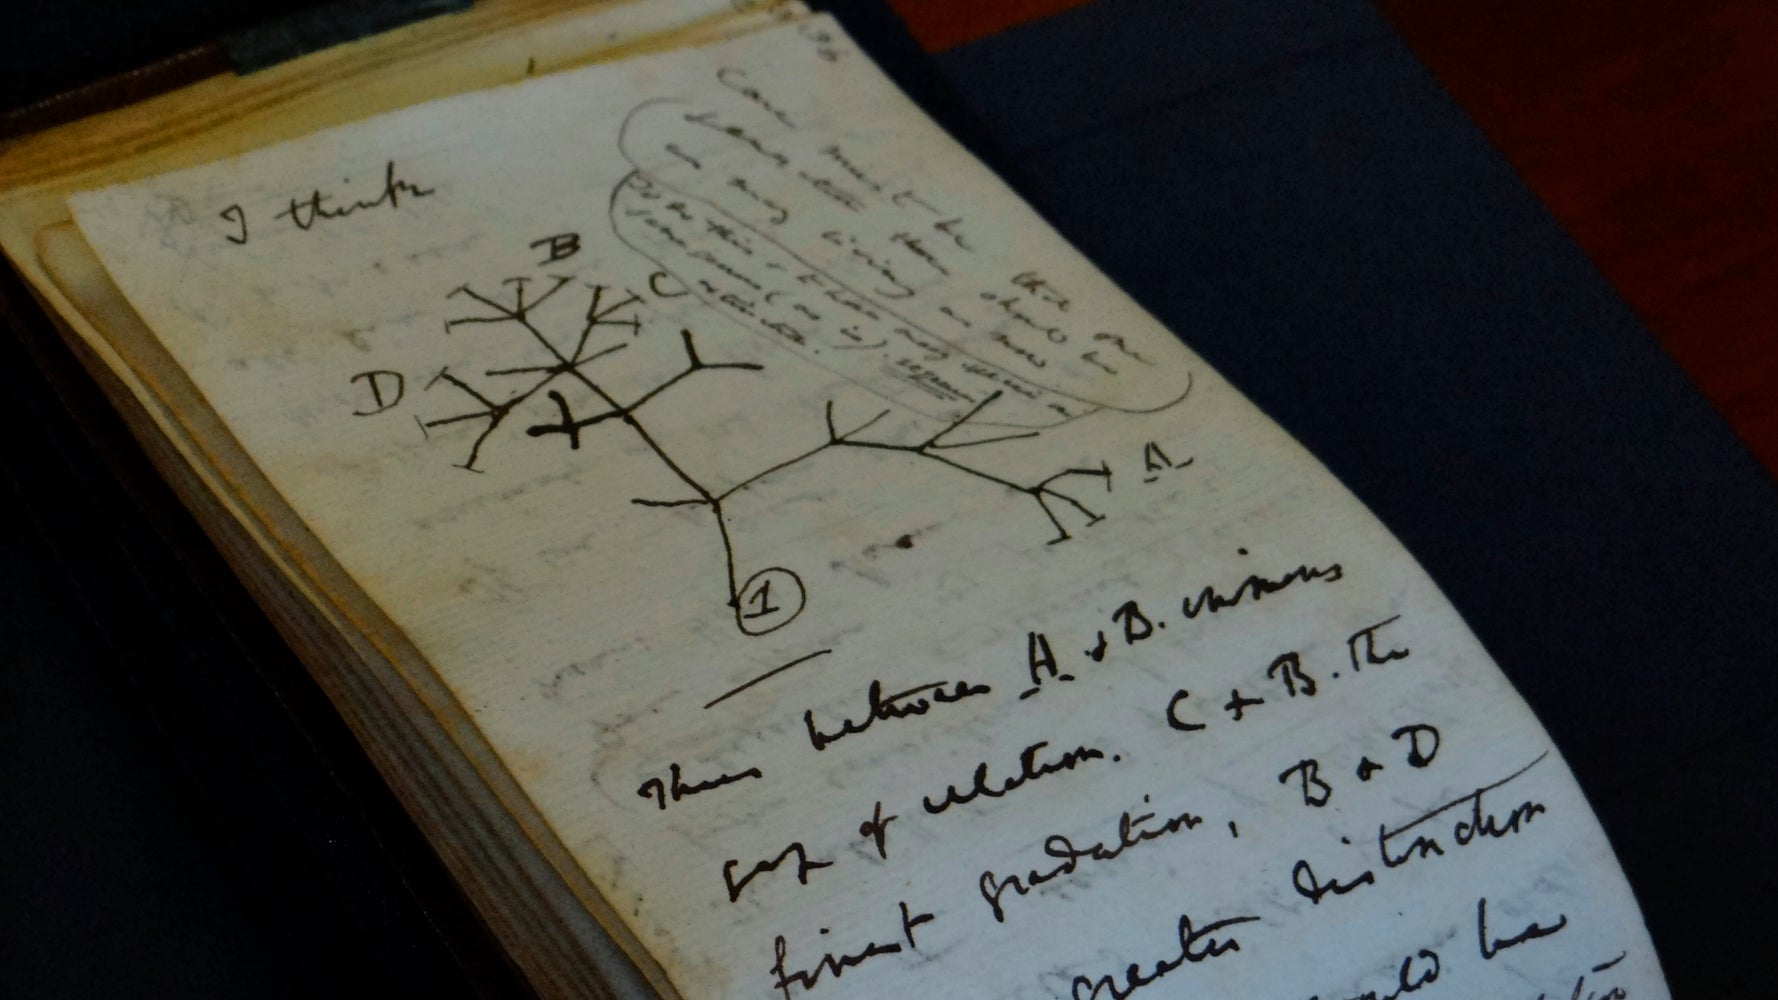 36
I think
Case must be that one
generation then should be
as many living as now
To do this & to have many species in
same genus (as is). requires
extinction.
B
C
D
A
1
Thus between A & B. immens
gap of relation. C & B. The
finest gradation, B & D
greater distinction
would be